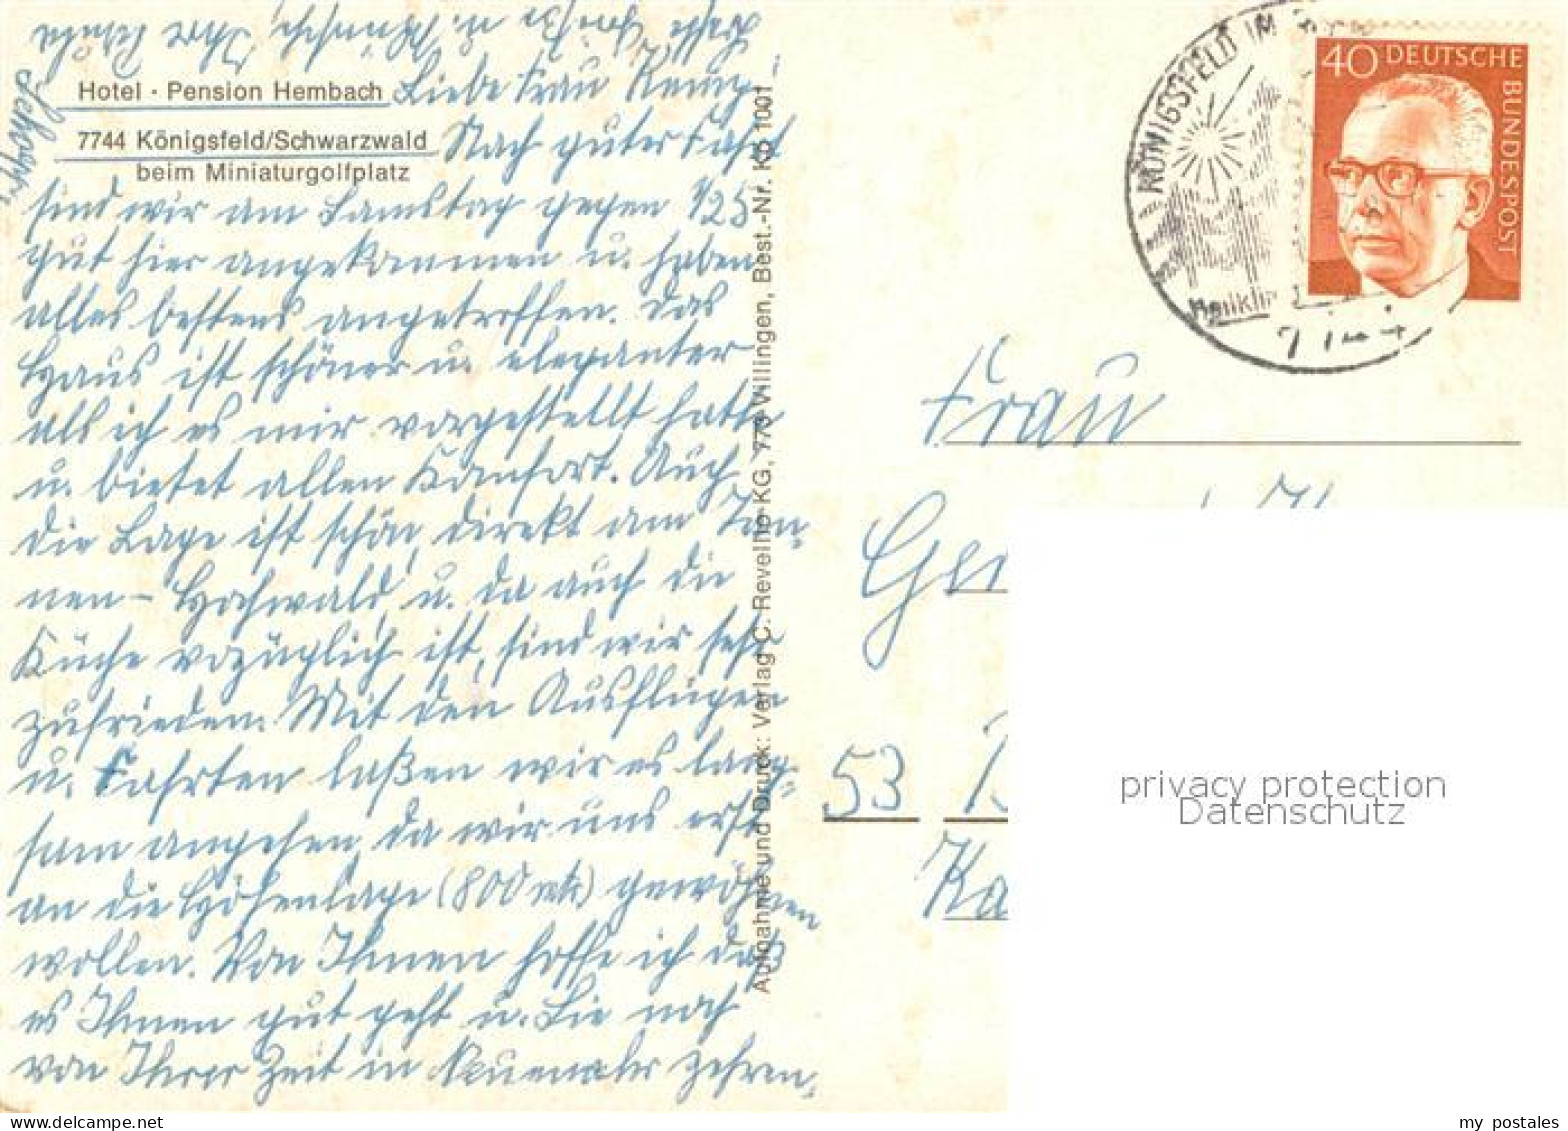 Hotel · Pension Hembach
7744 Königsfeld/Schwarzwald
beim Miniaturgolfplatz
Liebe Frau
Nach guter Fahrt
sind wir am Samstag gegen 1/2 5
gut hier angekommen u. haben
alles bestens angetroffen. Das
Haus ist schöner u. eleganter
als ich es mir vorgestellt hatte
u. bietet allen Komfort. Auch
die Lage ist schön, direkt am Tan-
nen-Hochwald, u. da auch die
Küche vozüglich ist, sind wir sehr
zufrieden. Mit den Ausflügen
u. Fahrten laßen wir es lang-
sam angehen, da wir uns erst
an die Höhenlage (800 mtr) gewöhnen
wollen. Von Ihnen hoffe ich daß
es Ihnen gut geht u. Sie noch
von Ihrer Zeit in Neuenahr zehren,
Grüße u.
Aufnahme und Druck: Verlag C. Revelho KG, 773 Villingen, Best.-Nr. Kö 1001
KÖNIGSFELD IM
40 DEUTSCHE
BUNDESPOST
Frau
53
privacy protection
Datenschutz
my postales